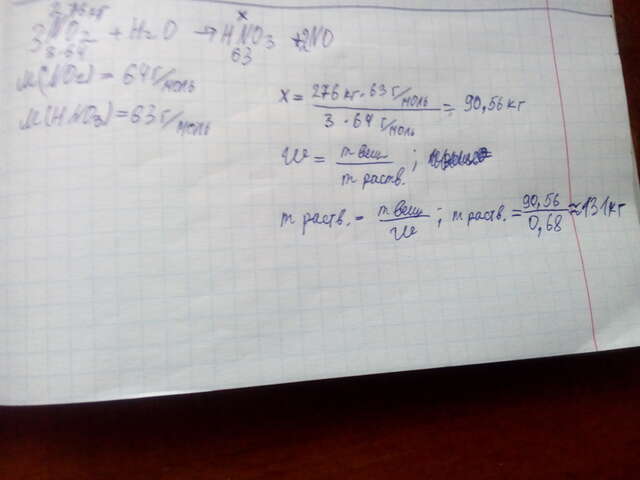 276 кг x
3NO₂ + H₂O → HNO₃ + 2NO
3·64 63
M(NO₂) = 64 г/моль
M(HNO₃) = 63 г/моль
x = 276 кг · 63 г/моль / 3 · 64 г/моль = 90,56 кг
W = m вещ. / m раств. ;
m раств. = m вещ. / W ; m раств. = 90,56 / 0,68 ≈ 131 кг